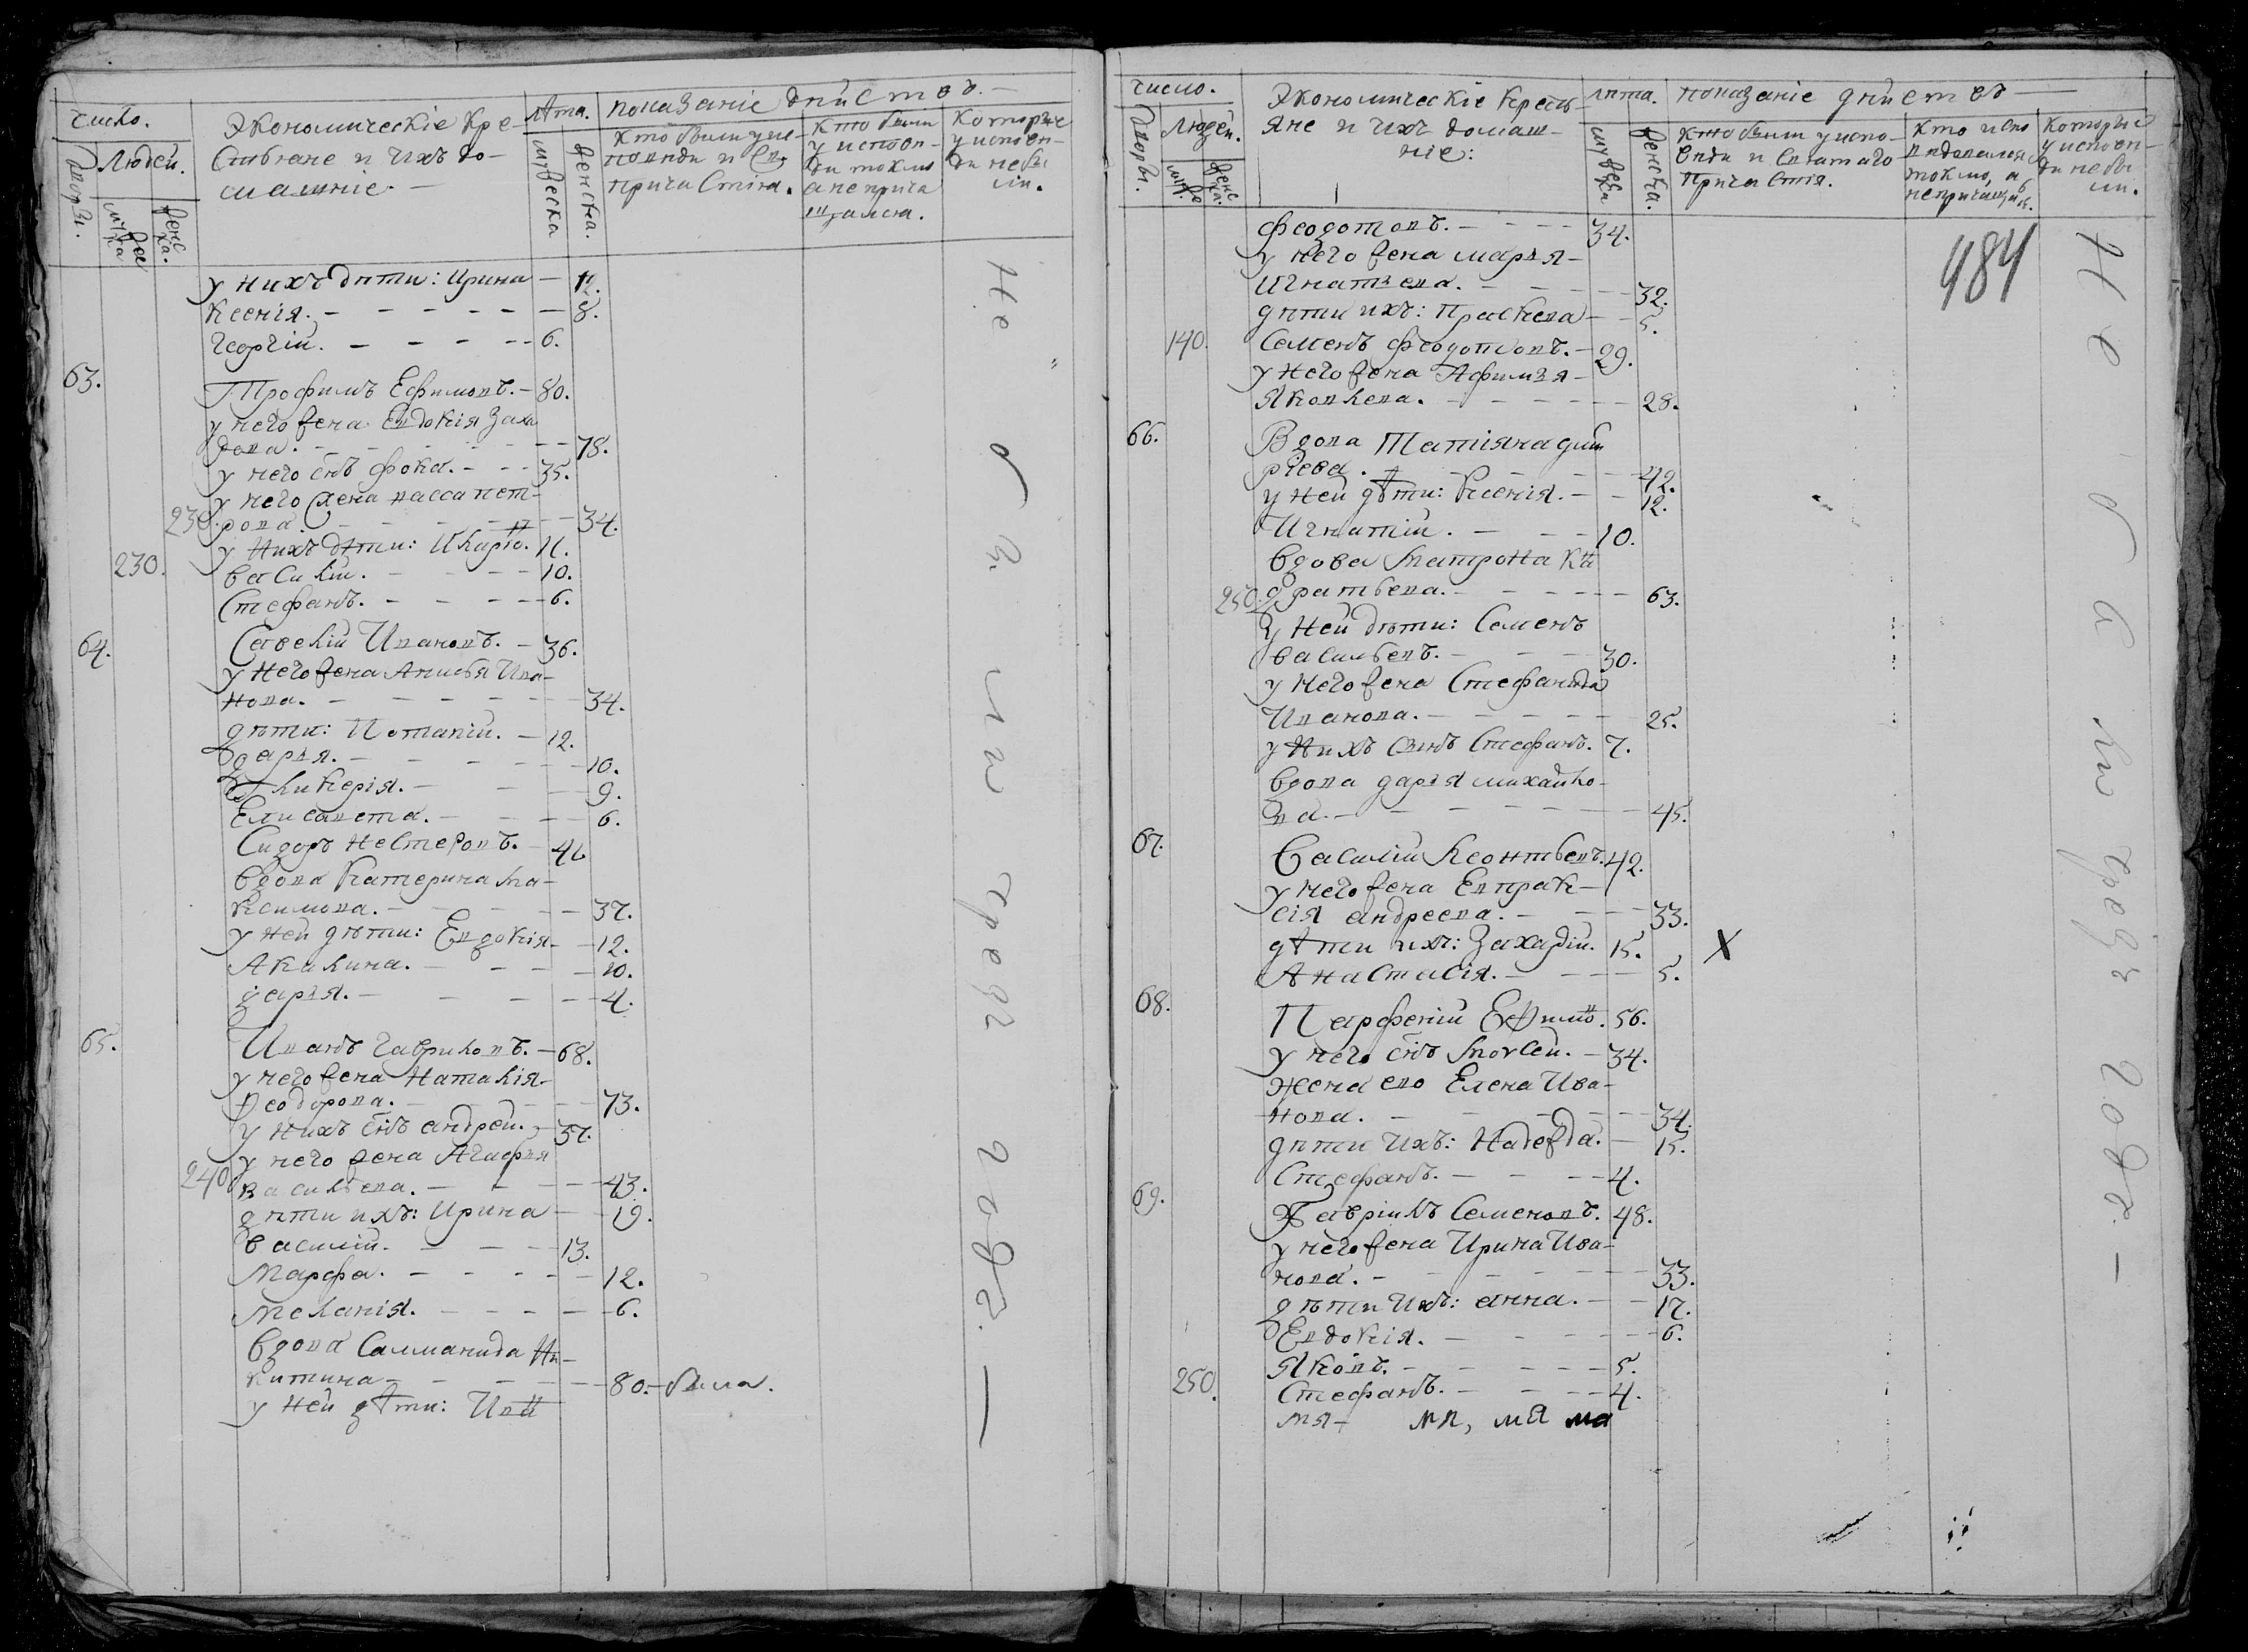 число.
Экономическіе Кре-
стьяне и ихъ до-
машніе. —
Лѣта.
показаніе дѣйствъ. —
Дворы.
Людей.
мужеска
женска.
мужеска
женска.
Кто были у испо-
вѣди и св.
причастія.
Кто были
у исповѣ-
ди токмо
а не прича
щались.
Которые
у исповѣ-
ди небы
ли.
у нихъ дѣти: Ирина — 12.
Ксенія. — 8.
Георгій. — 6.
63.
Трофимъ Ефимовъ. — 80.
у него жена Евдокія Заха
рова. — 78.
у него снъ Фока. — 35.
у него жена васса пет-
рова. — 34.
у нихъ дѣти: Иларіо. 11.
230. василій. — 10.
Стефанъ. — 6.
64.
Савелій Ивановъ. — 36.
у него жена Анисья Ива-
нова. — 34.
дѣти: Потапій. — 12.
дарья. — 10.
Гликерія. — 9.
Елисавета. — 6.
Сидоръ Нестеровъ. —
вдова Катерина ма-
ксимова. — 37.
у ней дѣти: Евдокія — 12.
Акилина. — 10.
дарья. — 4.
65.
Иванъ Гавриловъ. — 68.
у него жена Наталія
Феодорова. — 73.
у нихъ снъ андрей. — 37.
у него жена Агафья
240 васильева. — 43.
дѣти ихъ: Ирина — 19.
василій. — 13.
Марфа. — 12.
Меланія. — 6.
вдова Саломанида Ни-
китина — 80. — была.
у ней дѣти:
Не бы ли чрезъ годъ. —
число.
Экономическіе кресть
яне и ихъ домаш-
ніе:
лѣта.
показаніе дѣйствъ —
Дворы.
Людей.
муже
женс
ка.
мужеска
женска.
Кто были у испо-
вѣди и святаго
причастія.
Кто испо
вѣдовались
токмо, а
непричащались.
Которые
у исповѣ-
ди небы
ли.
484
Феодотовъ. — 34.
у него жена марья
Игнатьева. — 32.
дѣти ихъ: Праскева — 5.
140. Семенъ Феодотовъ. — 29.
у него жена Афимья
Яковлева. — 28.
66.
Вдова Татіяна дмит
ріева. — 42.
у ней дѣти: Ксенія. — 12.
Игнатій. — 10.
вдова матрона Ка
250. дратьева. — 63.
у ней дѣти: Семенъ
васильевъ. — 30.
у него жена Стефанида
Иванова. — 25.
у нихъ сынъ Стефанъ. 7.
вдова дарья михайло-
ва. — 45.
67.
василій Леонтьевъ. 42.
у него жена Евпрак-
сія андреева. — 33.
дѣти ихъ: Захарій. 15. X
Анастасія. — 5.
68.
Парфеній Ефимо. 56.
у него снъ Моѵсей. — 34.
жена ево Елена Ива-
нова. — 34.
дѣти ихъ: Надежда. — 15.
Стефанъ. — 4.
69.
Гавріилъ Семеновъ. 48.
у него жена Ирина Ива-
нова. — 33.
дѣти ихъ: анна. — 17.
Евдокія. — 6.
Яковъ. — 5.
250. Стефанъ. — 4.
Не бы ли чрезъ годъ. —